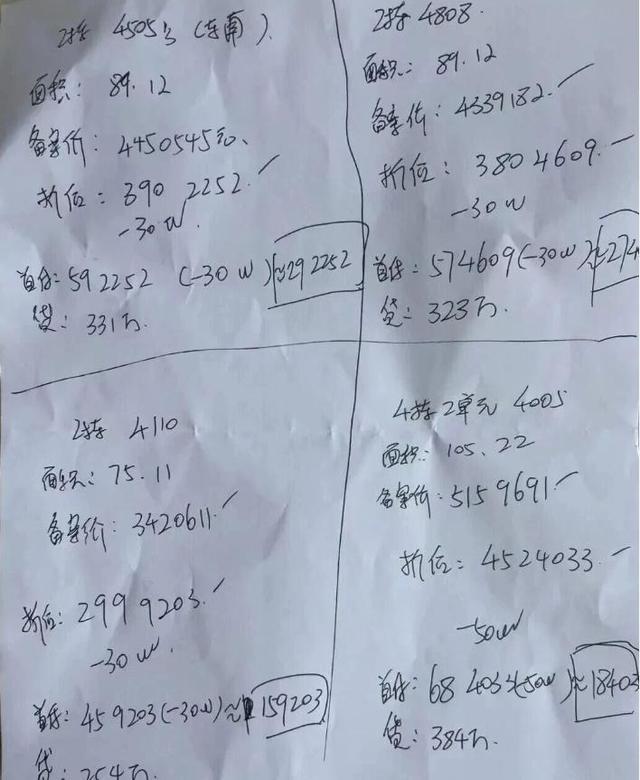 2栋 4505号 (东南).
面积: 89.12
备案价: 4450545元.
折后: 390 2252.
-30W.
首付: 592252 (-30W)≈292252
贷: 331万.
2栋 4808.
面积: 89.12
备案价: 4339182.
折后: 3804609.
-30W
首付: 574609(-30W)≈274
贷: 323万.
2栋 4110
面积: 75.11
备案价: 3420611.
折后: 299 9203.
-30W.
首付: 459203(-30W)≈159203
贷: 254万.
4栋2单元 4005
面积: 105.22
备案价: 5159691
折后: 4524033.
-50W
首付: 684033(-50W)≈18403
贷: 384万.